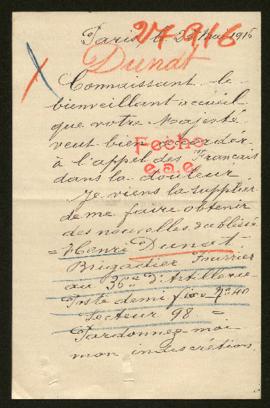 Paris, le 2 Mai 1916
27916
Dunat
Connaissant le
bienveillant accueil
que votre Majesté
veut bien accorder
à l'appel des Français
dans la douleur
Fecha
e.a.e.
Je viens la supplier
de me faire obtenir
des nouvelles du blessé
= Henri Dunat =
Brigadier Fourrier
au 36e d'Artillerie
Poste demi fixe No 40
Secteur 98 =
Pardonnez moi
mon indiscrétion